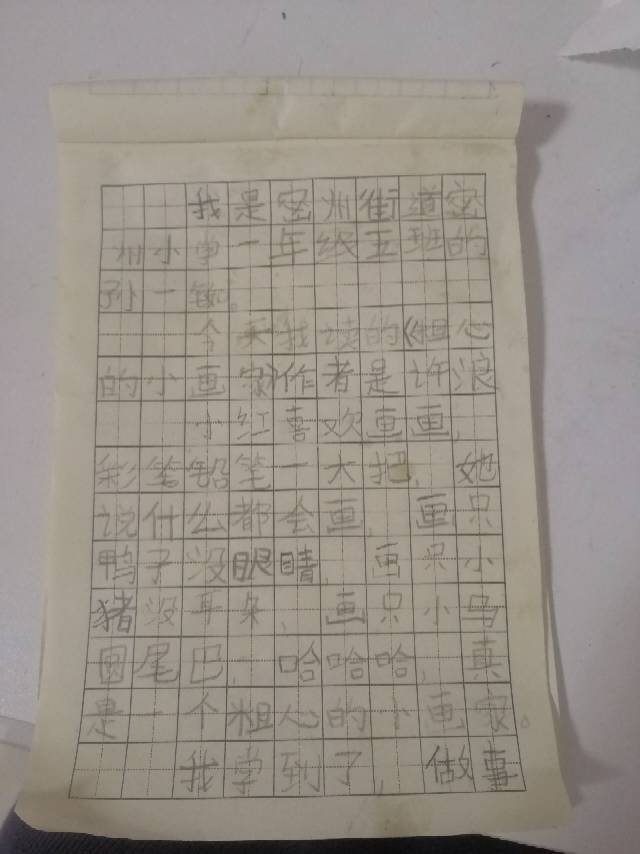 我是密州街道密
州小学一年级五班的
孙一敏。
今天我读的《粗心
的小画家》作者是许浪
小红喜欢画画,
彩笔铅笔一大把,她
说什么都会画,画只
鸭子没眼睛,画只小
猪没耳朵,画只小马
圆尾巴,哈哈哈,真
是一个粗心的小画家。
我学到了,做事